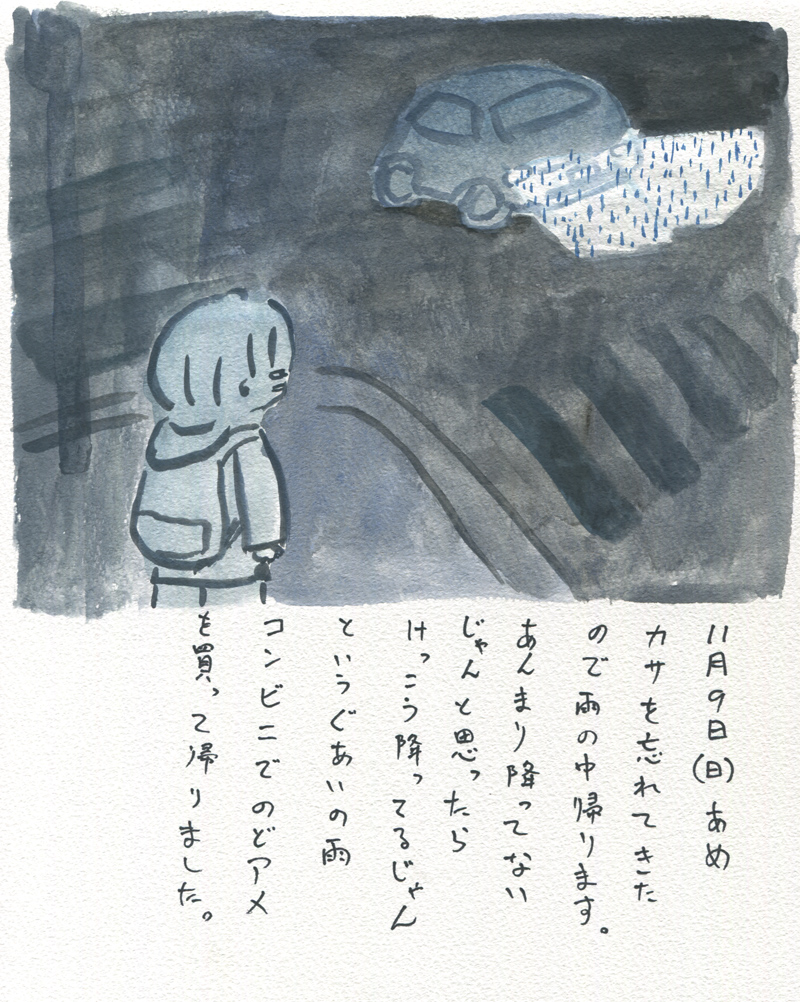 11月9日(日)あめ
カサを忘れてきた
ので雨の中帰ります。
あんまり降ってない
じゃんと思ったら
けっこう降ってるじゃん
というぐあいの雨
コンビニでのどアメ
を買って帰りました。